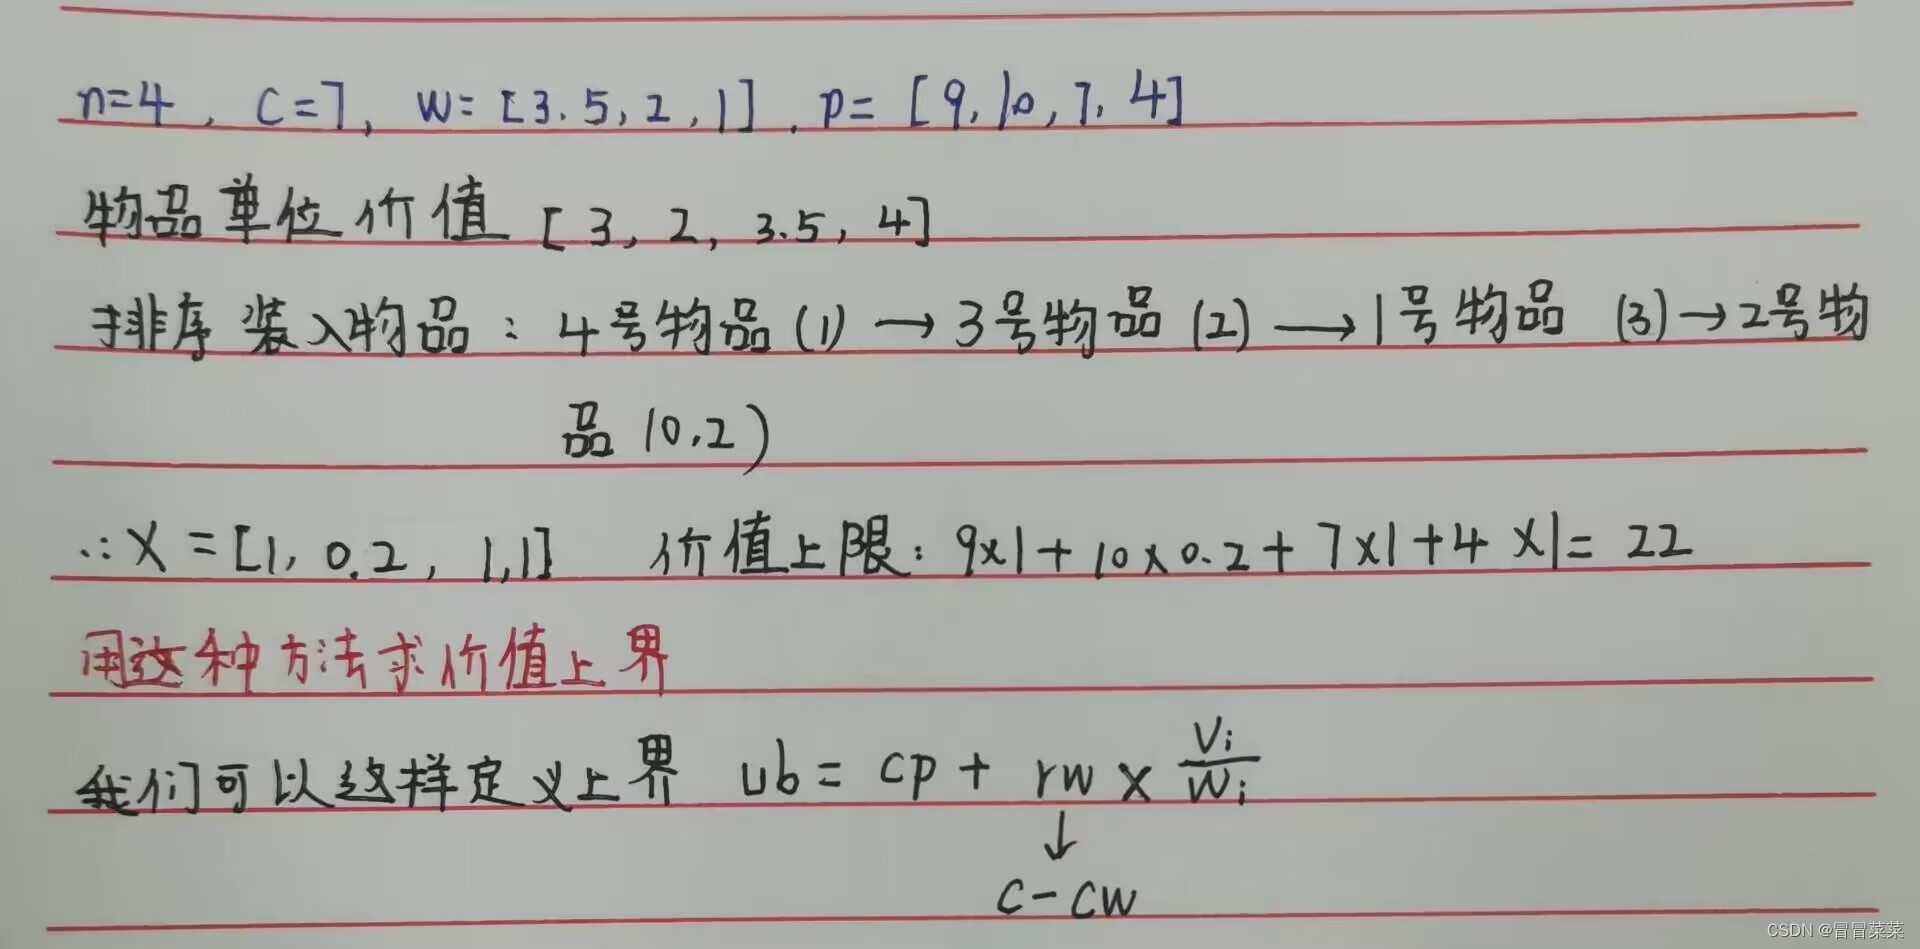 n=4, C=7, W=[3.5,2,1].p=[9,10,7,4]
物品单位价值[3,2,3.5,4]
排序装入物品:4号物品(1)→3号物品(2)→1号物品(3)→2号物
品(0.2)
∴X=[1,0.2,1,1] 价值上限:9x1+10x0.2+7x1+4x1=22
用这种方法求价值上界
我们可以这样定义上界 ub=cp+rw×Vi/Wi
↓
C-CW
CSDN @冒冒菜菜